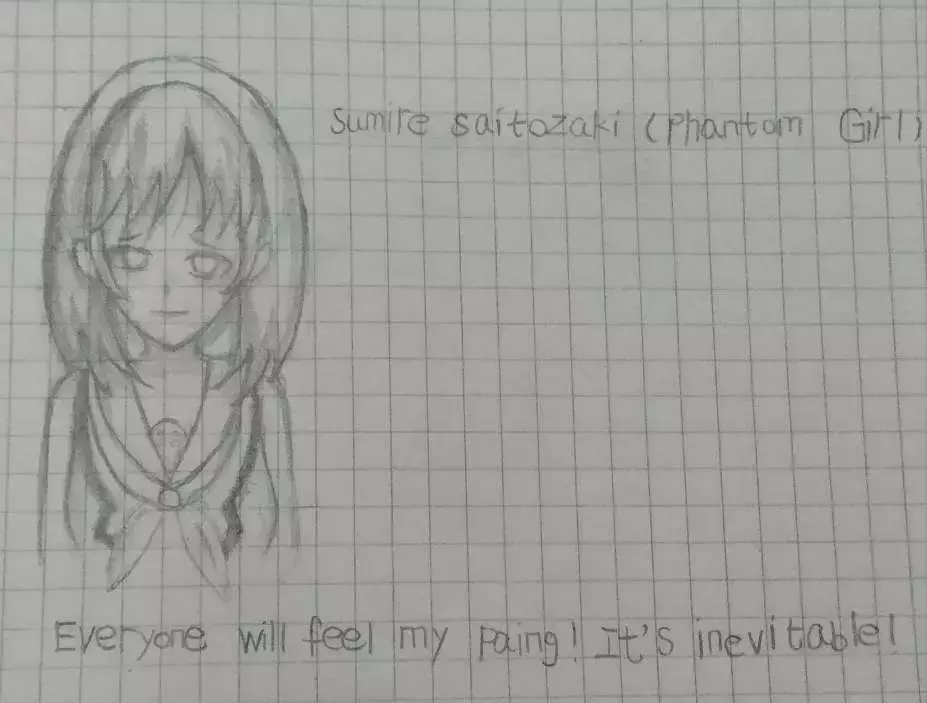 Sumire saitozaki (Phantom Girl)
Everyone will feel my paing! It's inevitable!